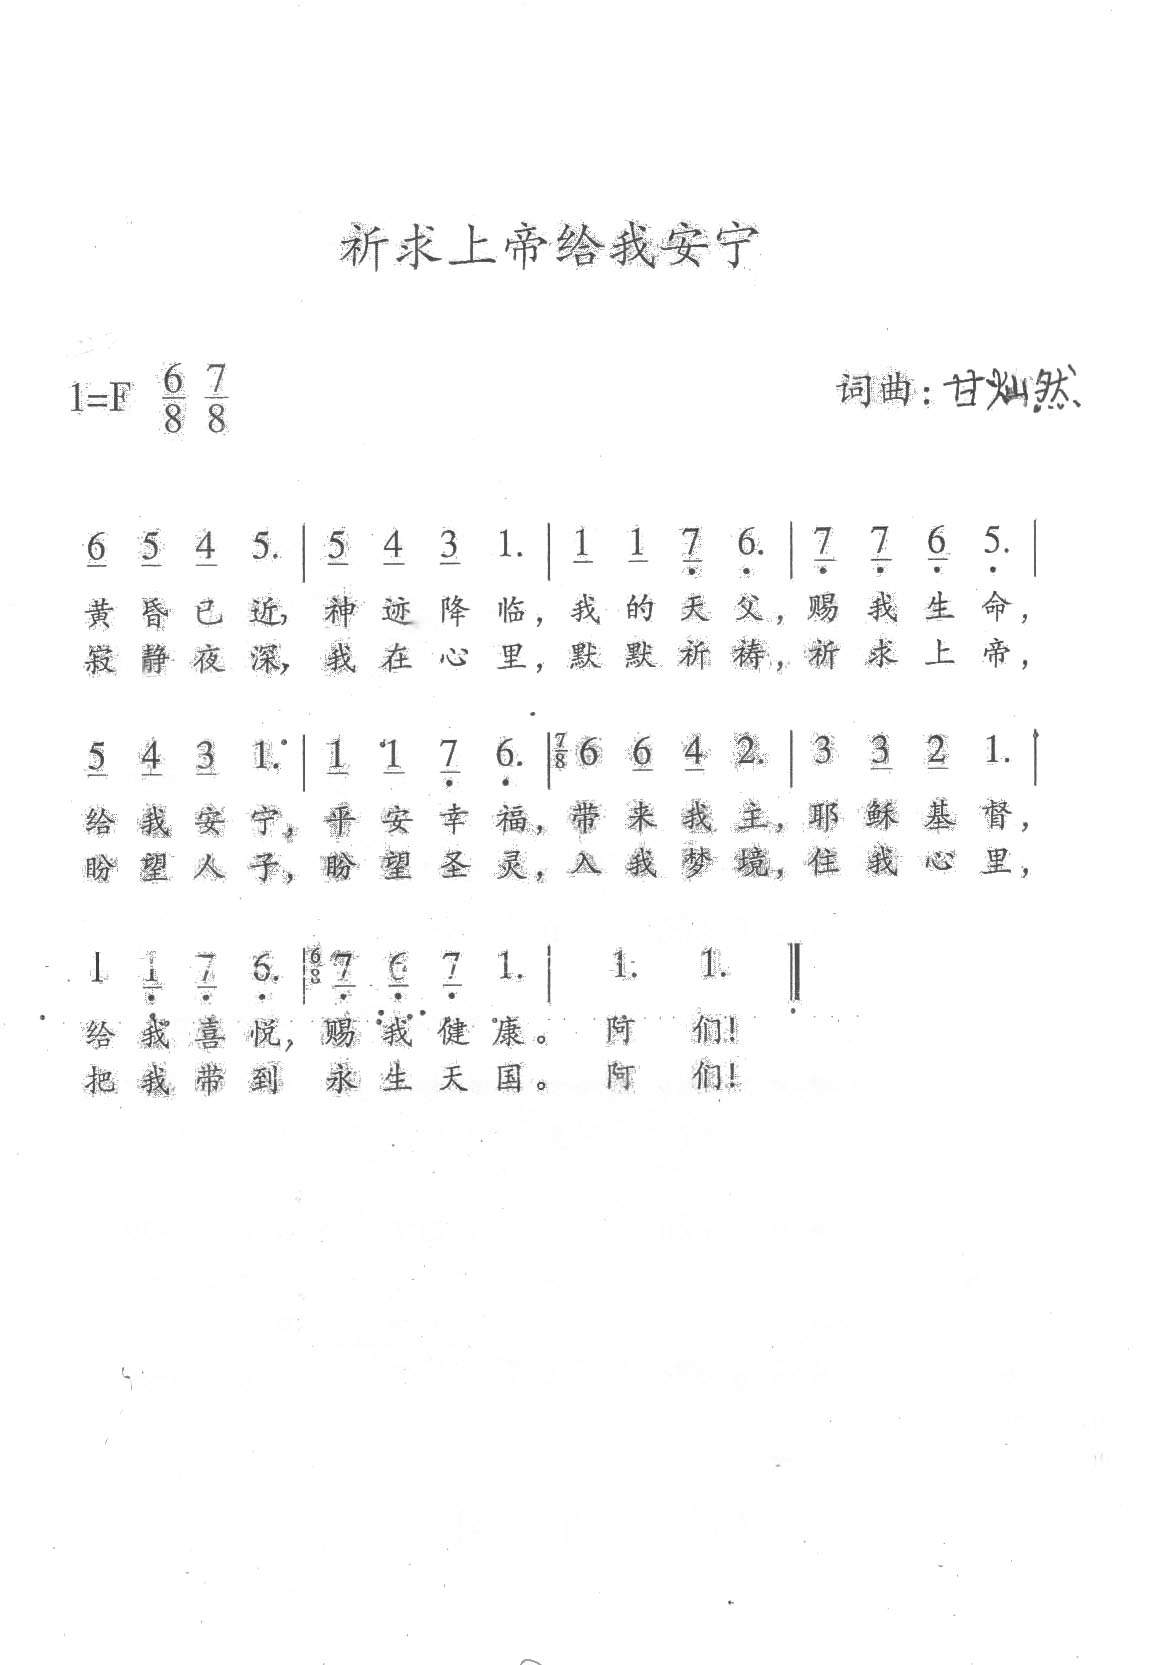 祈求上帝给我安宁
1=F 6/8 7/8 词曲:甘灿然
6 5 4 5. | 5 4 3 1. | 1 1 7 6. | 7 7 6 5. |
黄昏已近,神迹降临,我的天父,赐我生命,
寂静夜深,我在心里,默默祈祷,祈求上帝,
5 4 3 1. | 1 1 7 6. | 7/8 6 6 4 2. | 3 3 2 1. |
给我安宁,平安幸福,带来我主,耶稣基督,
盼望人子,盼望圣灵,入我梦境,住我心里,
1 1 7 6. | 6/8 7 6 7 1. | 1. 1. ‖
给我喜悦,赐我健康。阿们!
把我带到永生天国。阿们!